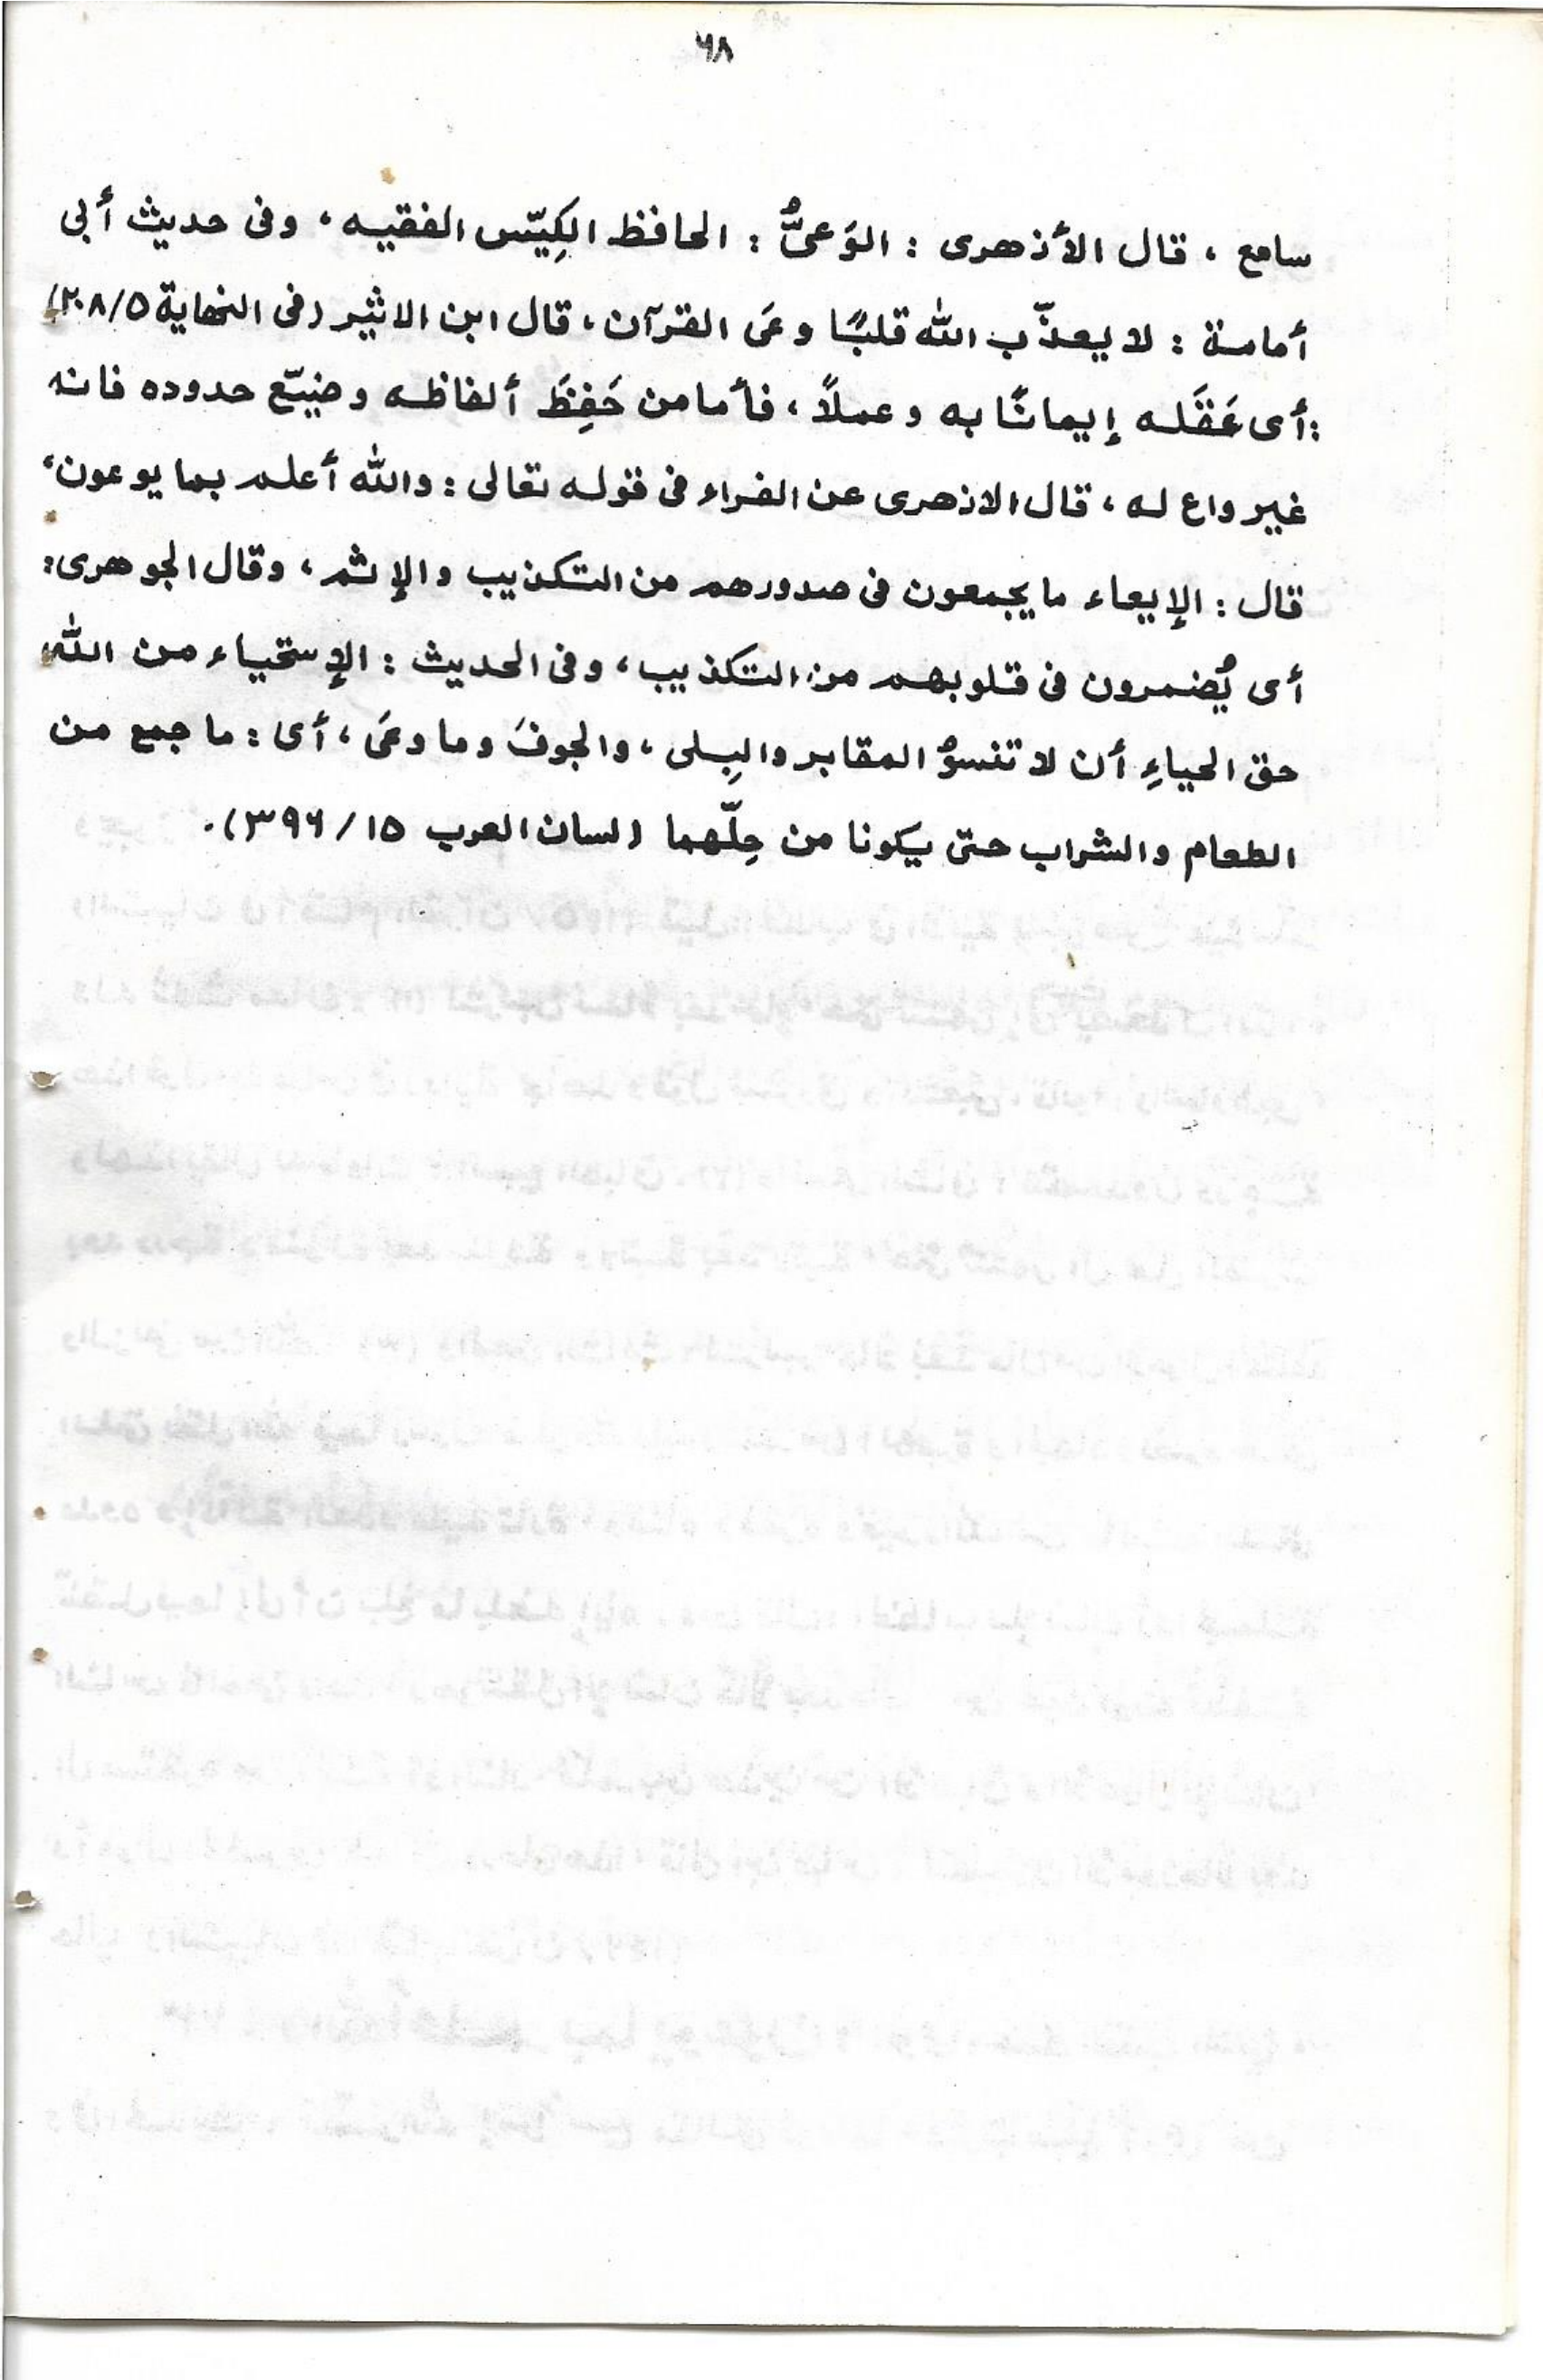 ٦٨
سامع ، قال الأزهرى : الوَعىُّ : الحافظ الكِيّس الفقيه ، وفى حديث أبى
أمامة : لا يعذّب الله قلبًا وعَى القرآن ، قال ابن الاثير (فى النهاية ٢٠٨/٥)
: أى عَقَله إيمانًا به وعملاً ، فأما من حَفِظَ ألفاظه وضيّع حدوده فانه
غير واع له ، قال الازهرى عن الفراء فى قوله تعالى : والله أعلم بما يوعون ،
قال : الإيعاء ما يجمعون فى صدورهم من التكذيب والإثم ، وقال الجوهرى :
أى يُضمرون فى قلوبهم من التكذيب ، وفى الحديث : الإستحياء من الله
حق الحياءِ أن لا تنسوُ المقابر والبِلى ، والجوفَ وما وعَى ، أى : ما جمع من
الطعام والشراب حتى يكونا من حِلّهما (لسان العرب ١٥ / ٣٩٦) .